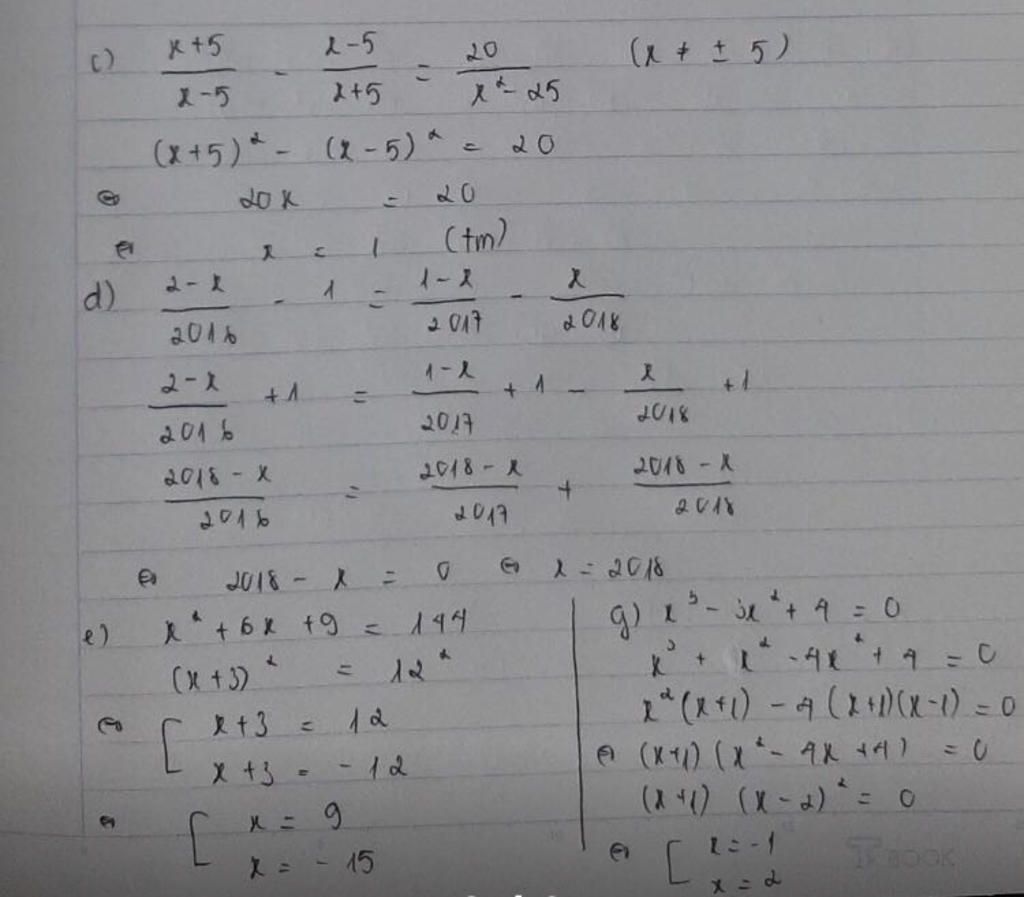 c) (x+5)/(x-5) - (x-5)/(x+5) = 20/(x² - 25) (x ≠ ± 5)
(x+5)² - (x-5)² = 20
⇔ 20x = 20
⇔ x = 1 (tm)
d) (2-x)/2016 - 1 = (1-x)/2017 - x/2018
(2-x)/2016 + 1 = (1-x)/2017 + 1 - x/2018 + 1
(2018 - x)/2016 = (2018 - x)/2017 + (2018 - x)/2018
⇔ 2018 - x = 0 ⇔ x = 2018
e) x² + 6x + 9 = 144
(x+3)² = 12²
⇔ [ x+3 = 12
x+3 = -12
⇔ [ x = 9
x = -15
g) x³ - 3x² + 4 = 0
x³ + x² - 4x² + 4 = 0
x²(x+1) - 4(x+1)(x-1) = 0
⇔ (x+1)(x² - 4x + 4) = 0
(x+1) (x-2)² = 0
⇔ [ x = -1
x = 2
BOOK